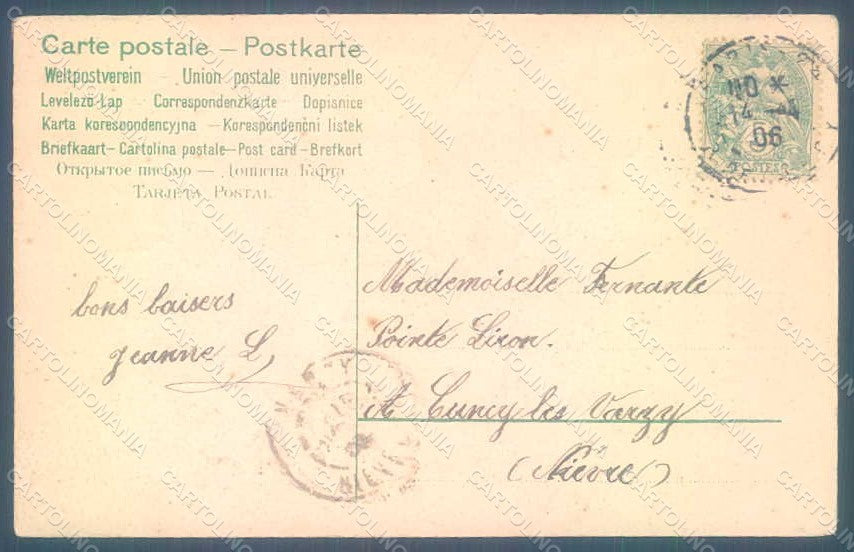 Carte postale – Postkarte
Weltpostverein – Union postale universelle
Levelező-Lap – Correspondenzkarte Dopisnice
Karta korespondencyjna – Korespondenční listek
Briefkaart – Cartolina postale – Post card – Brefkort
Открытое письмо — Дописна Карта
TARJETA POSTAL
14 - 4
06
POSTES
bons baisers
Jeanne L
Mademoiselle Fernante
Pointe Liron.
A Cuncy les Varzy
(Nièvre)
NIEVRE
CARTOLINOMANIA